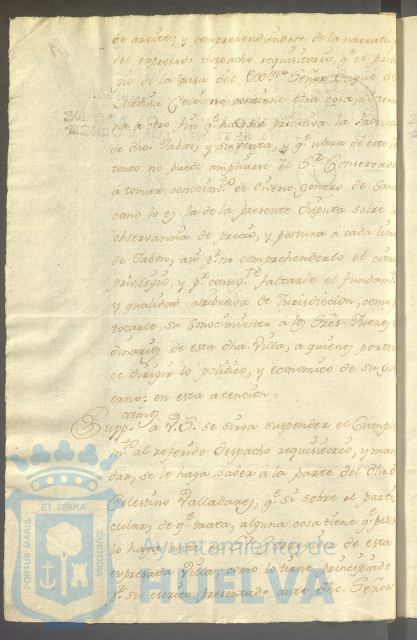 de azeite; y comprehendiendose de la narrativa
del expresado despacho requisitorio, q.e el privi
gio de la casa del Ex.mo Señor Duque de
Medina Celi no contiene otra cosa, ni ter
na à otro fin q.e
privativa la fabrica
de dho. Jabon, y su venta, y q.e
no puede ampliarse el S.r Conservad
à tomar conocim.to de diverso genero de Cau
como lo es la de la presente disputa sobre la
observancia de precio, y postura à cada libra
de Jabon, asi p.r no comprehenderlo el cita
privilegio, y p.r consig.te faltarle el fundam.to
y qualidad atributiva de Jurisdiccion, como
tocarle su conocimiento à los Sres. Juezes
dinarios de esta dha. Villa, a quienes perten
ce dirigir lo politico, y economico de su go
erno: en esta atencion =
Supp.camos à V.S. se sirva suspender el Cumpli
m.to al referido despacho requisitorio, y man
dar, se le haga saber à la parte del dho. D.
Celestino Valladares, q.e si sobre el parti
cular, de q.e trata, alguna cosa tiene q.e pedir
lo haga ante
de esta
expresada Villa, como lo tiene principiado
p.r su escrito presentado ante dho. Señor
ET TERRÆ
PORTUS MARIS
CUSTODIA
Ayuntamiento de
HUELVA